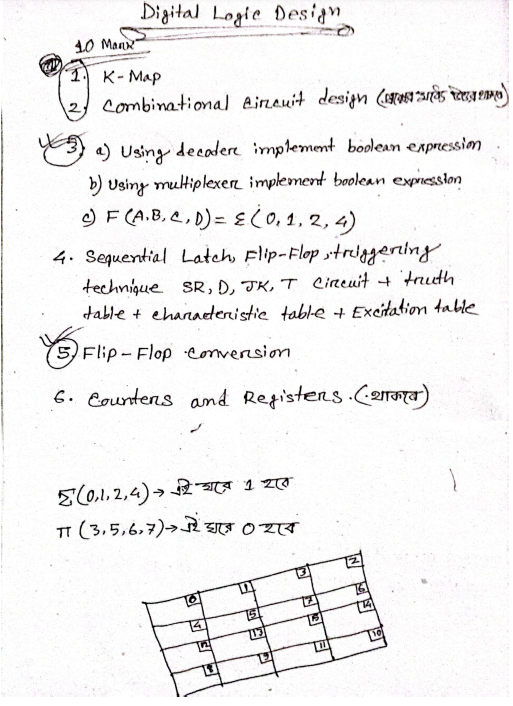 Digital Logic Design
10 Marx
1. K-Map
2. Combinational circuit design (থাকবে)
3. a) Using decoder implement boolean expression
b) Using multiplexer implement boolean expression
c) F (A.B, C, D) = Σ (0, 1, 2, 4)
4. Sequential Latch, Flip-Flop, triggering
technique SR, D, JK, T Circuit + truth
table + characteristic table + Excitation table
5. Flip-Flop conversion
6. Counters and Registers. (থাকবে)
Σ(0,1,2,4) → এই ঘরে 1 হবে
π (3,5,6,7) → এই ঘরে 0 হবে
0 1 3 2
4 5 7 6
12 13 15 14
8 9 11 10